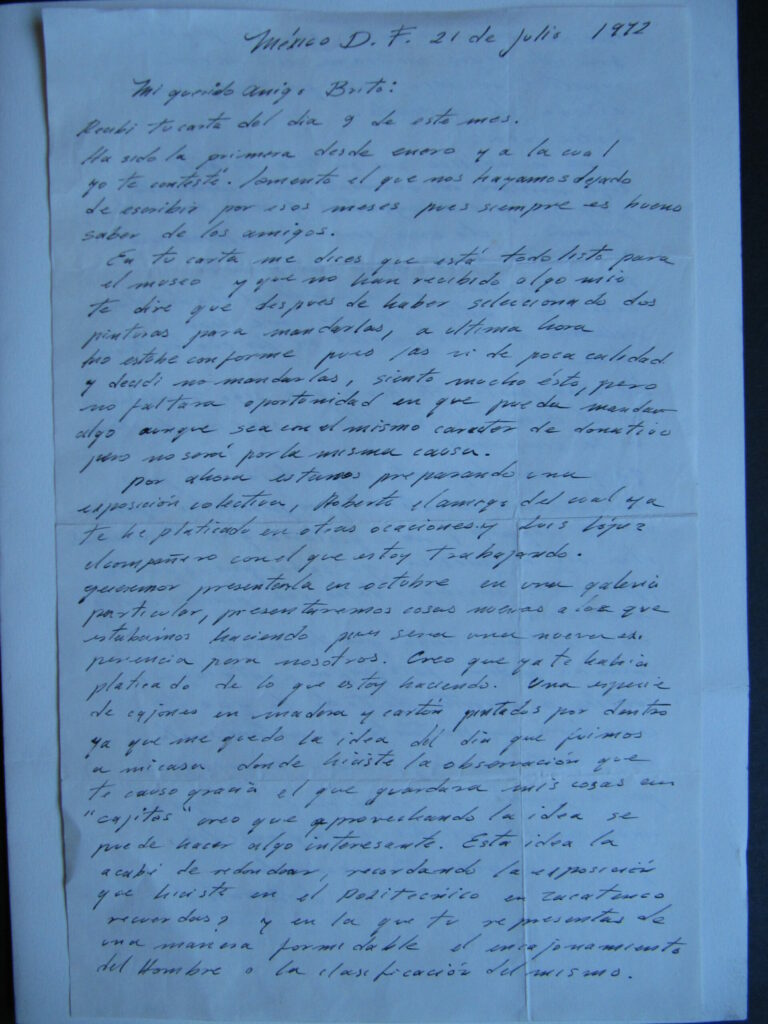 México D. F. 21 de Julio 1972
Mi querido amigo Brito:
Recibi tu carta del dia 9 de este mes.
Ha sido la primera desde enero y a la cual
yo te contesté. lamento el que nos hayamos dejado
de escribir por esos meses pues siempre es bueno
saber de los amigos.
En tu carta me dices que está todo listo para
el museo y que no han recibido algo mio
te dire que despues de haber seleccionado dos
pinturas para mandarlas, a ultima hora
no estube conforme pues las vi de poca calidad
y decidi no mandarlas, siento mucho ésto, pero
no faltara oportunidad en que pueda mandar
algo aunque sea con el mismo caracter de donativo
pero no será por la misma causa.
Por ahora estamos preparando una
exposición colectiva, Roberto el amigo del cual ya
te he platicado en otras ocaciones y Luis López
el compañero con el que estoy trabajando.
queremos presentarla en octubre en una galeria
particular, presentaremos cosas nuevas a las que
estabamos haciendo pues sera una nueva ex-
periencia para nosotros. Creo que ya te habia
platicado de lo que estoy haciendo. Una especie
de cajones en madera y cartón pintados por dentro
ya que me quedo la idea del dia que fuimos
a mi casa donde hiciste la observación que
te causo gracia el que guardara mis cosas en
"cajitas" creo que aprovechando la idea se
puede hacer algo interesante. Esta idea la
acabé de redondear, recordando la exposición
que hiciste en el Politecnico en Zacatenco
recuerdas? y en la que tu representas de
una manera formidable el encajonamiento
del Hombre o la clasificación del mismo.